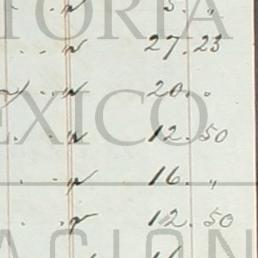 TORIA
3. "
. . " 27.23
. . " 20. "
EXICO
" 12.50
. . " 16. "
. . " 12.50
ACION